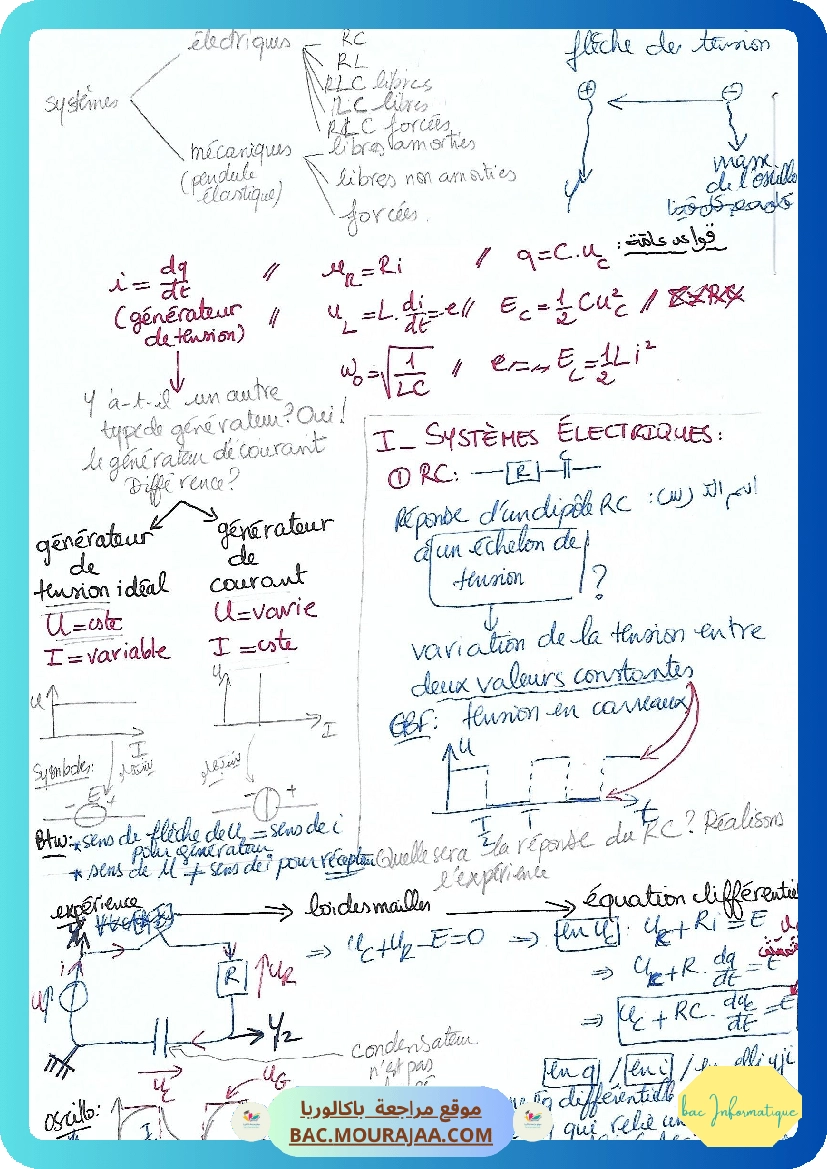 électriques
RC
RL
RLC libres
LC libres
RLC forcées
systèmes
mécaniques
(pendule
élastique)
libres amorties
libres non amorties
forcées.
flèche de tension
+ −
Y
masse
de l'oscillo
i = dq/dt // u_R = Ri // q = C.u_c : قواعد عامة
(générateur
de tension) // u_L = L.di/dt = -e // E_c = 1/2 C u_c² //
ω_0 = √(1/LC) // E_L = 1/2 L i²
Y a-t-il un autre
type de générateur? Oui!
le générateur de courant
Différence?
générateur
de
tension idéal
U = cste
I = variable
générateur
de
courant
U = varie
I = cste
U
I
U
I
Symboles:
E +
+
Btw: * sens de flèche de U = sens de i
pour générateur
* sens de U ≠ sens de i pour récepteur
I_ SYSTÈMES ÉLECTRIQUES:
① RC: R C
Réponse d'un dipôle RC : اسم الدرس
à un échelon de
tension ?
variation de la tension entre
deux valeurs constantes
GBF: tension en carreaux
U
T/2 T t
Quelle sera la réponse du RC? Réalisons
l'expérience
expérience → loi des mailles → équation différentie
⇒ u_c + u_R − E = 0 ⇒ en u_c : u_c + Ri = E
⇒ u_c + R.dq/dt = E
⇒ u_c + RC.du_c/dt = E
i
u
R
u_R
Y2
u_c
condensateur
n'est pas
en q / en i /
différentielle
qui relie un
oscillo:
u_G
موقع مراجعة باكالوريا
BAC.MOURAJAA.COM
bac Informatique